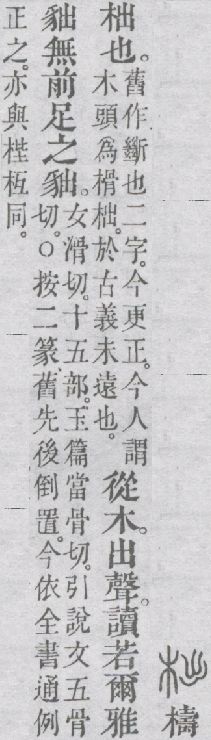 柮 檮
柮也。舊作斷也二字。今更正。今人謂
木頭爲榾柮。於古義未遠也。從木。出聲。讀若爾雅
貀無前足之貀。女滑切。十五部。玉篇當骨切。引說文五骨
切。○按二篆舊先後倒置。今依全書通例
正之。亦與梐枑同。